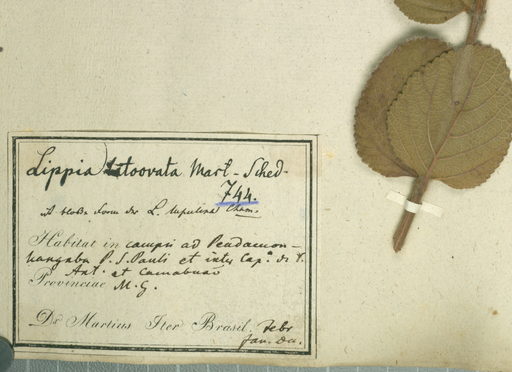 Lippia obovata Mart - Sched -
744.
ist bloße Form der L. lupulina Cham.
Habitat in campis ad Pendamon-
hangaba P. S. Pauli et inter Cap. de S.
Ant. et Camabuao
Provinciae M. G.
Dr Martius Iter Brasil. Febr
Jan. Dec.